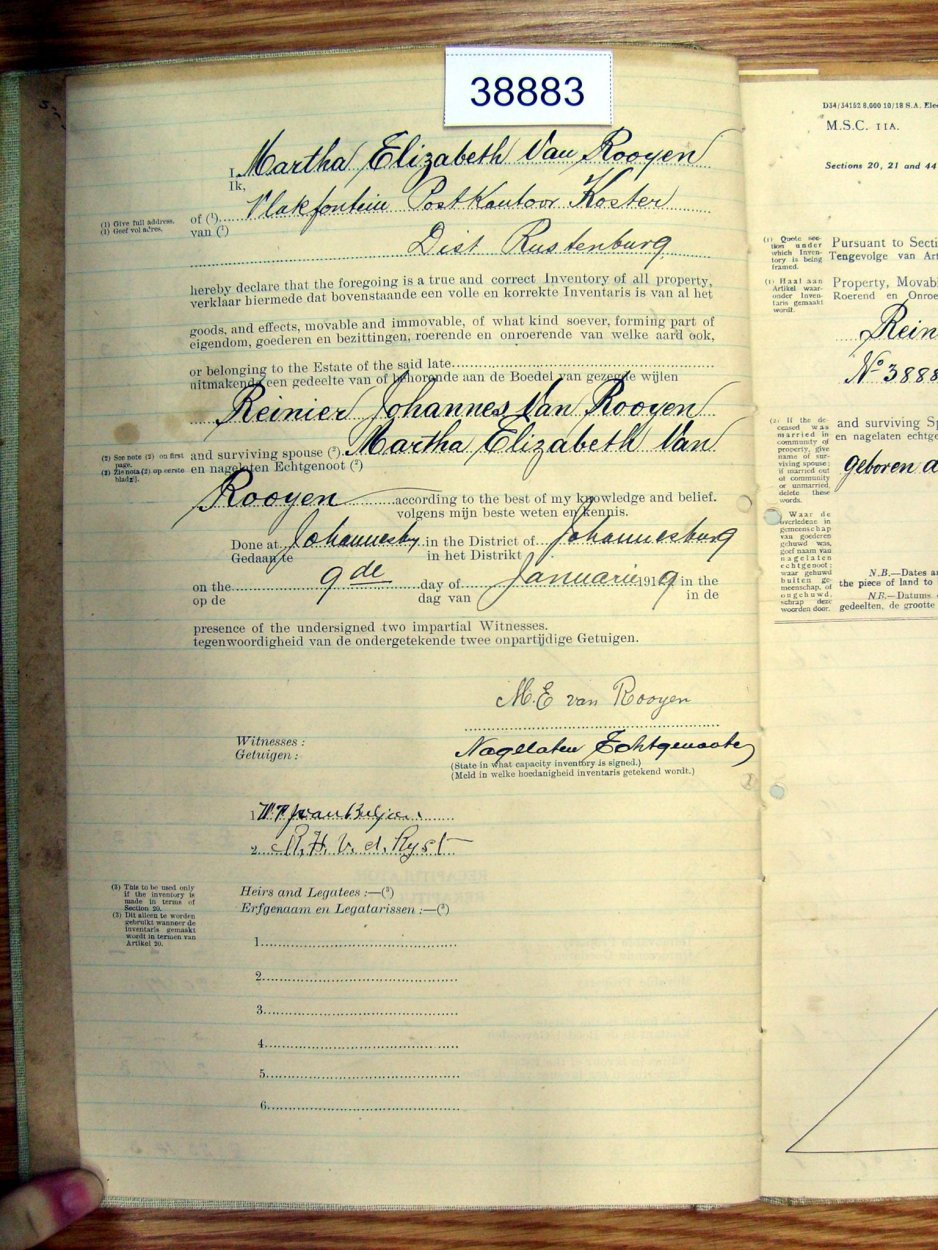 38883
I, Martha Elizabeth Van Rooyen
Ik,
(1) Give full address.
(1) Geef vol adres.
of (1) Vlakfontein Postkantoor Koster
van (1)
Dist Rustenburg
hereby declare that the foregoing is a true and correct Inventory of all property,
verklaar hiermede dat bovenstaande een volle en korrekte Inventaris is van al het
goods, and effects, movable and immovable, of what kind soever, forming part of
eigendom, goederen en bezittingen, roerende en onroerende van welke aard ook,
or belonging to the Estate of the said late
uitmakende een gedeelte van of behorende aan de Boedel van gezegde wijlen
Reinier Johannes Van Rooyen
(2) See note (2) on first
page.
(2) Zie nota (2) op eerste
bladz.
and surviving spouse (2). Martha Elizabeth Van
en nagelaten Echtgenoot (2)
Rooyen according to the best of my knowledge and belief.
volgens mijn beste weten en kennis.
Done at Johannesby in the District of Johannesburg
Gedaan te in het Distrikt
on the 9de day of Januarie 1919 in the
op de dag van in de
presence of the undersigned two impartial Witnesses.
tegenwoordigheid van de ondergetekende twee onpartijdige Getuigen.
M. E van Rooyen
Witnesses :
Getuigen :
Nagelaten Echtgenoote
(State in what capacity inventory is signed.)
(Meld in welke hoedanigheid inventaris getekend wordt.)
1
2 R. H. V. d. Ryst
(3) This to be used only
if the inventory is
made in terms of
Section 20.
(3) Dit alleen te worden
gebruikt wanneer de
inventaris gemaakt
wordt in termen van
Artikel 20.
Heirs and Legatees :—(3)
Erfgenaam en Legatarissen :—(3)
1
2
3
4
5
6
D34/34152 8,000 10/18 S.A. Elec
M.S.C. IIA.
Sections 20, 21 and 44
(1) Quote sec-
tion under
which Inven-
tory is being
framed.
(1) Haal aan
Artikel waar-
onder Inven-
taris gemaakt
wordt.
Pursuant to Secti
Tengevolge van Art
Property, Movab
Roerend en Onroe
Rein
No 3888
(2) If the de-
ceased was
married in
community of
property, give
name of sur-
viving spouse;
if married out
of community
or unmarried,
delete these
words.
Waar de
overledene in
gemeenschap
van goederen
gehuwd was,
geef naam van
nagelaten
echtgenoot;
waar gehuwd
buiten ge-
meenschap, of
ongehuwd,
schrap deze
woorden door.
and surviving Sp
en nagelaten echtge
geboren d
N.B.—Dates a
the piece of land to
NB.—Datums
gedeelten, de grootte